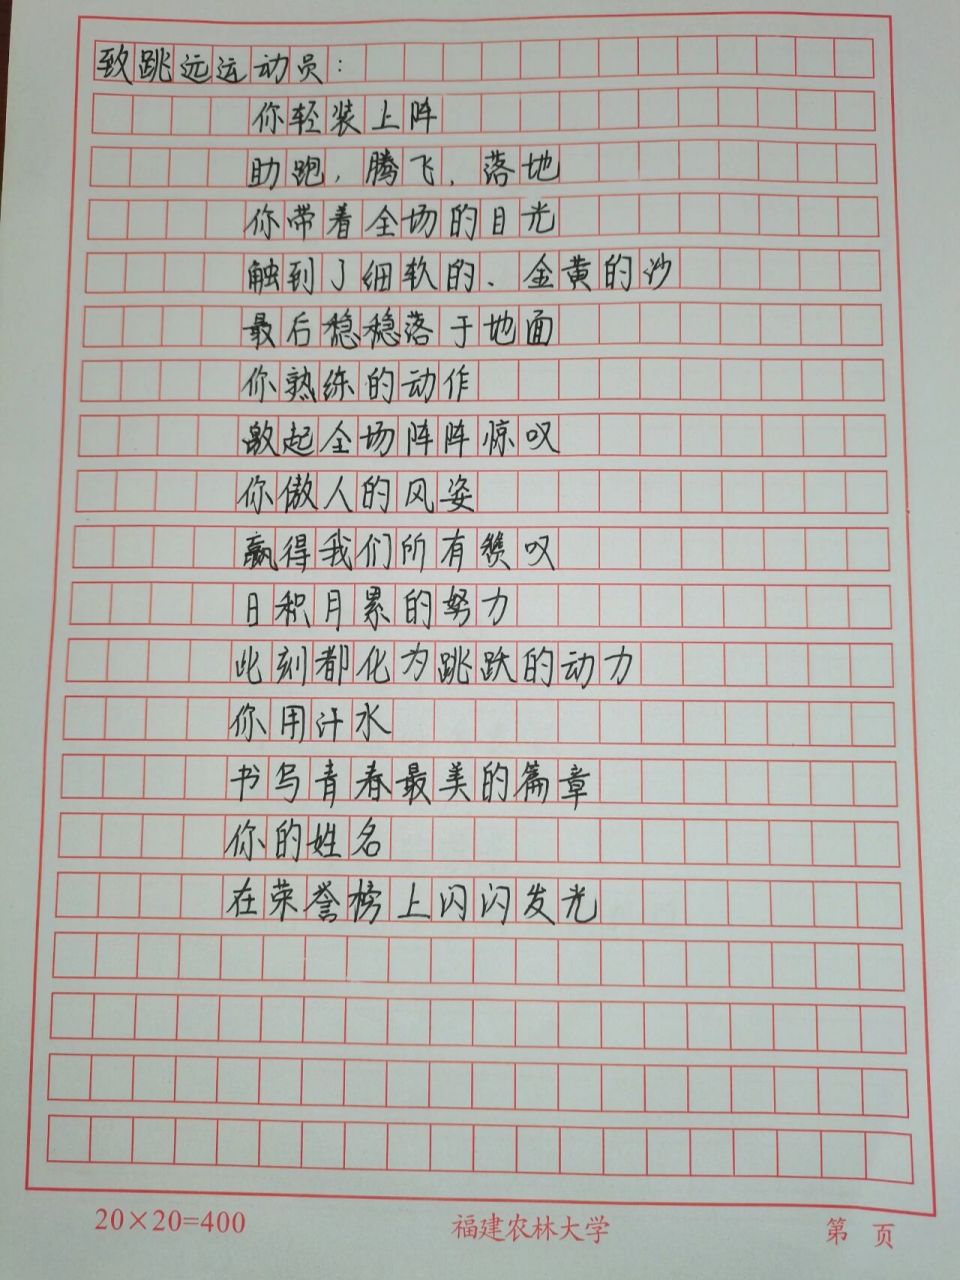 致跳远运动员：
你轻装上阵
助跑，腾飞，落地
你带着全场的目光
触到了细软的、金黄的沙
最后稳稳落于地面
你熟练的动作
激起全场阵阵惊叹
你傲人的风姿
赢得我们所有赞叹
日积月累的努力
此刻都化为跳跃的动力
你用汗水
书写青春最美的篇章
你的姓名
在荣誉榜上闪闪发光
20×20=400 福建农林大学 第 页